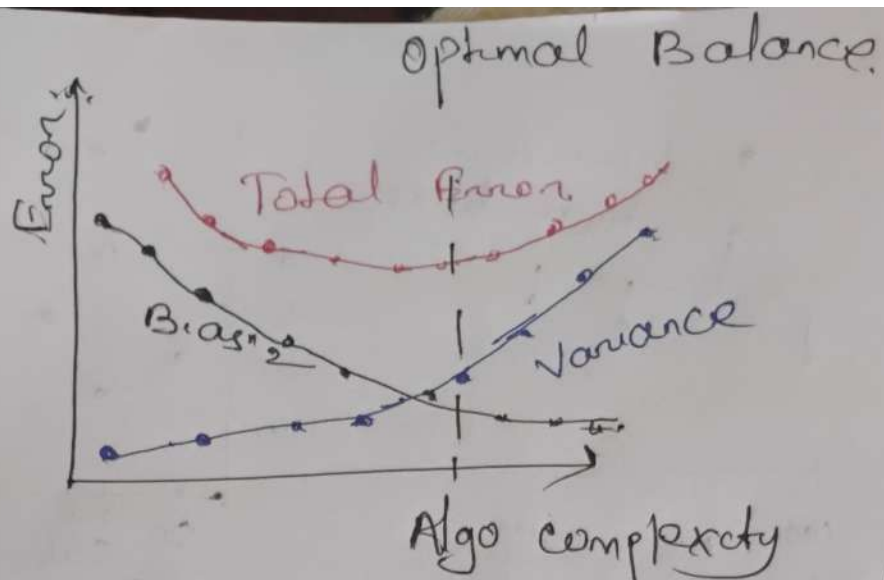 Optimal Balance.
Error.
Total Error.
Bias^2
Variance
Algo complexcty